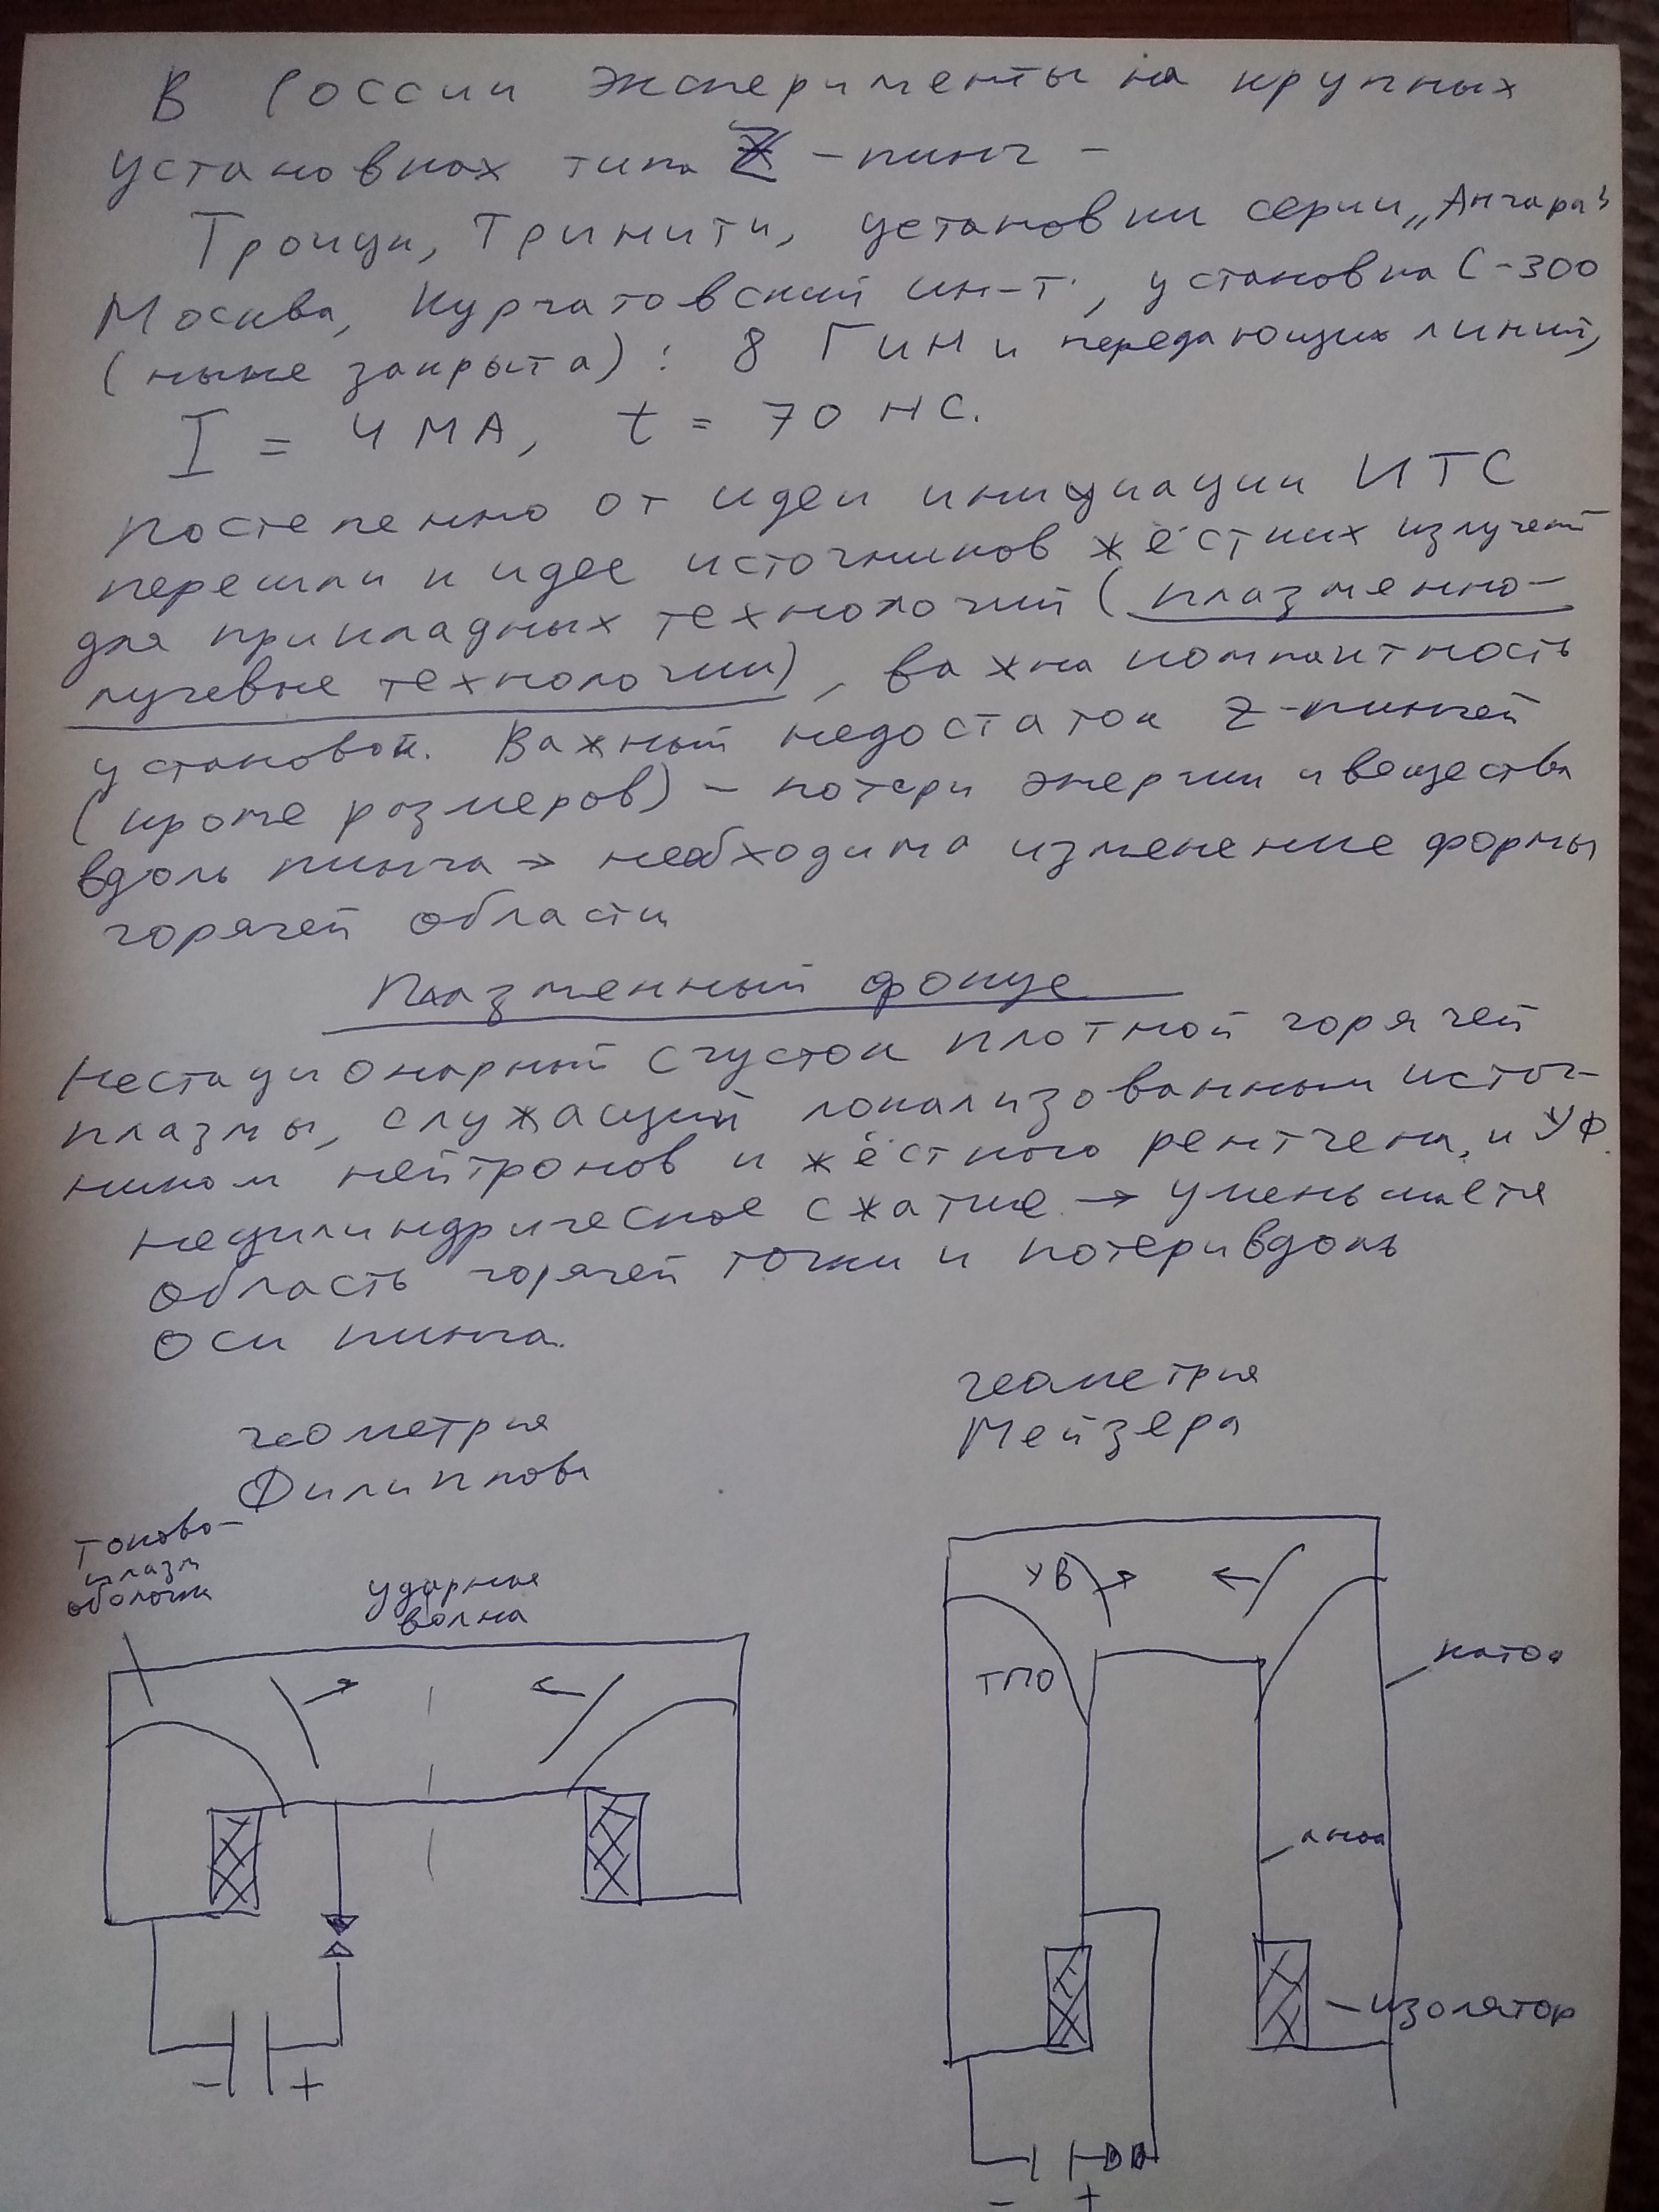 В России эксперименты на крупных
установках типа Z -пинч -
Троицк, Тринити, установки серии „Ангара"
Москва, Курчатовский ин-т, установка С-300
(ныне закрыта) : 8 ГИН и передающих линий,
I = 4 МА, t = 70 нс.
Постепенно от идеи инициации ИТС
перешли к идее источников жёстких излучений
для прикладных технологий (плазменно-
лучевые технологии), важна компактность
установок. Важный недостаток Z-пинчей
(кроме размеров) - потери энергии и вещества
вдоль пинча → необходимо изменение формы
горячей области
Плазменный фокус
Нестационарный сгусток плотной горячей
плазмы, служащий локализованным источ-
ником нейтронов и жёсткого рентгена, и УФ.
Нецилиндрическое сжатие → уменьшается
область горячей точки и потери вдоль
оси пинча.
геометрия
Филиппова
геометрия
Мейзера
токово-
плазм
оболочка
ударная
волна
- +
УВ
ТПО
катод
анод
- изолятор
- +